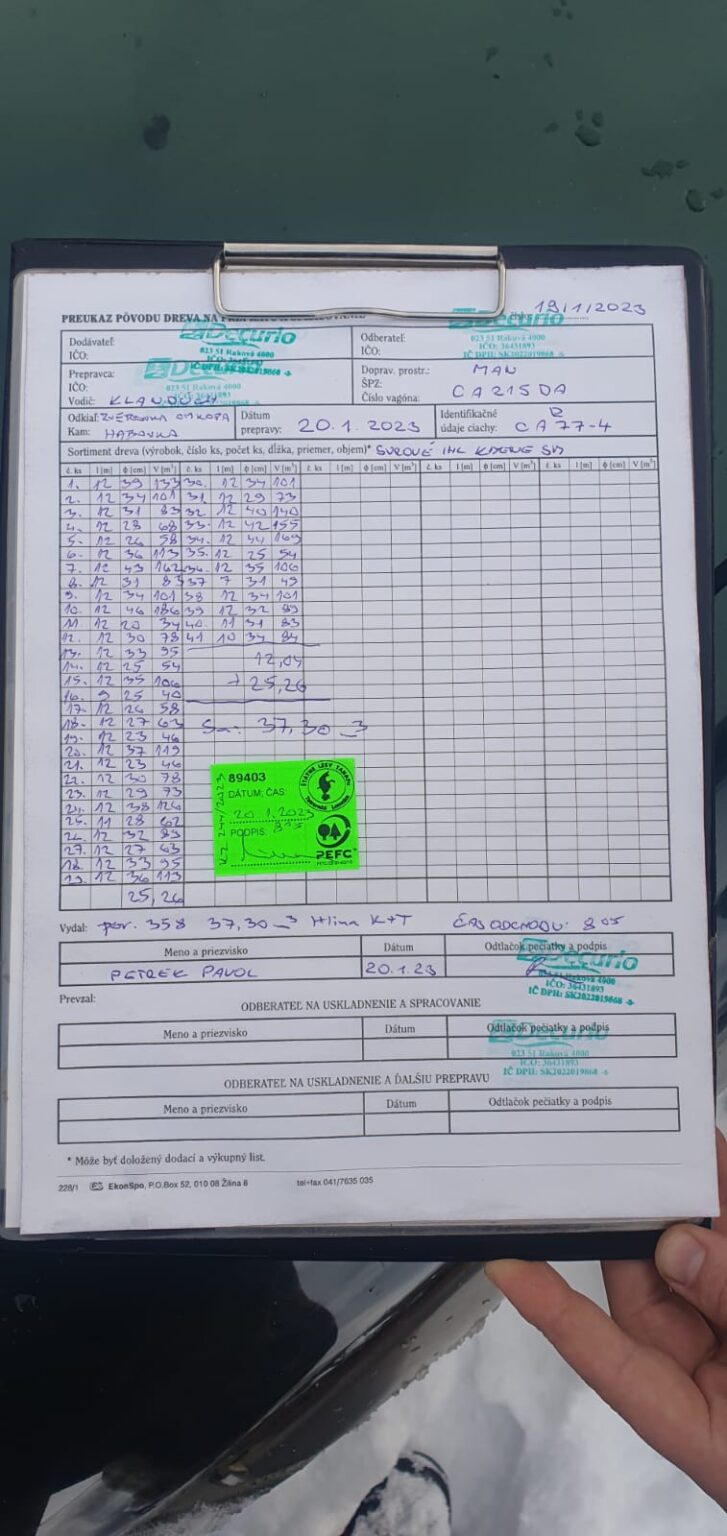 19/1/2023
PREUKAZ PÔVODU DREVA NA
Decurio
Decurio
Dodávateľ:
IČO:
023 51 Raková 4000
Odberateľ:
IČO:
023 51 Raková 4000
IČO: 36431893
IČ DPH: SK2022019868
Prepravca:
IČO:
Vodič:
Decurio
023 51 Raková 4000
Doprav. prostr.: MAN
ŠPZ:
Číslo vagóna: CA 215 DA
Odkiaľ:
Kam: HABOVKA
Dátum
prepravy: 20.1.2023
Identifikačné
údaje ciachy: CA 77-4
Sortiment dreva (výrobok, číslo ks, počet ks, dĺžka, priemer, objem)* SUROVÉ IHL
č. ks l [m] ϕ [cm] V [m³] č. ks l [m] ϕ [cm] V [m³] č. ks l [m] ϕ [cm] V [m³] č. ks l [m] ϕ [cm] V [m³] č. ks l [m] ϕ [cm] V [m³]
1. 12 39 133 30. 12 34 101
2. 12 34 101 31 12 29 73
3. 12 31 83 32 12 40 140
4. 12 28 68 33. 12 42 155
5. 12 26 58 34. 12 44 169
6. 12 36 113 35. 12 25 54
7. 12 43 162 36. 12 35 106
8. 12 31 83 37 7 31 49
9. 12 34 101 38 12 34 101
10. 12 46 186 39 12 32 89
11 12 20 34 40. 11 31 83
12. 12 30 78 41 10 34 84
13. 12 33 95
14. 12 25 54 12,04
15. 12 35 106 + 25,26
16. 9 25 40
17. 12 26 58
18. 12 27 63 37,30
19. 12 23 46
20. 12 37 119
21. 12 23 46
22. 12 30 78
23. 12 29 73
24. 12 38 126
25. 11 28 62
26. 12 32 89
27. 12 27 63
28. 12 33 95
29. 12 36 113
25,26
89403
DÁTUM, ČAS:
20.1.2023
PODPIS:
ŠTÁTNE LESY TANAPu
PEFC
Vydal: por. 358 37,30 Hlina K+T ČAS ODCHODU: 8 05
Meno a priezvisko Dátum Odtlačok pečiatky a podpis
PETREK PAVOL 20.1.23
Decurio
023 51 Raková 4000
IČO: 36431893
IČ DPH: SK2022019868
Prevzal:
ODBERATEĽ NA USKLADNENIE A SPRACOVANIE
Meno a priezvisko Dátum Odtlačok pečiatky a podpis
Decurio
023 51 Raková 4000
IČO: 36431893
IČ DPH: SK2022019868
ODBERATEĽ NA USKLADNENIE A ĎALŠIU PREPRAVU
Meno a priezvisko Dátum Odtlačok pečiatky a podpis
* Môže byť doložený dodací a výkupný list.
228/1 EkonSpo, P.O.Box 52, 010 08 Žilina 8 tel+fax 041/7635 035